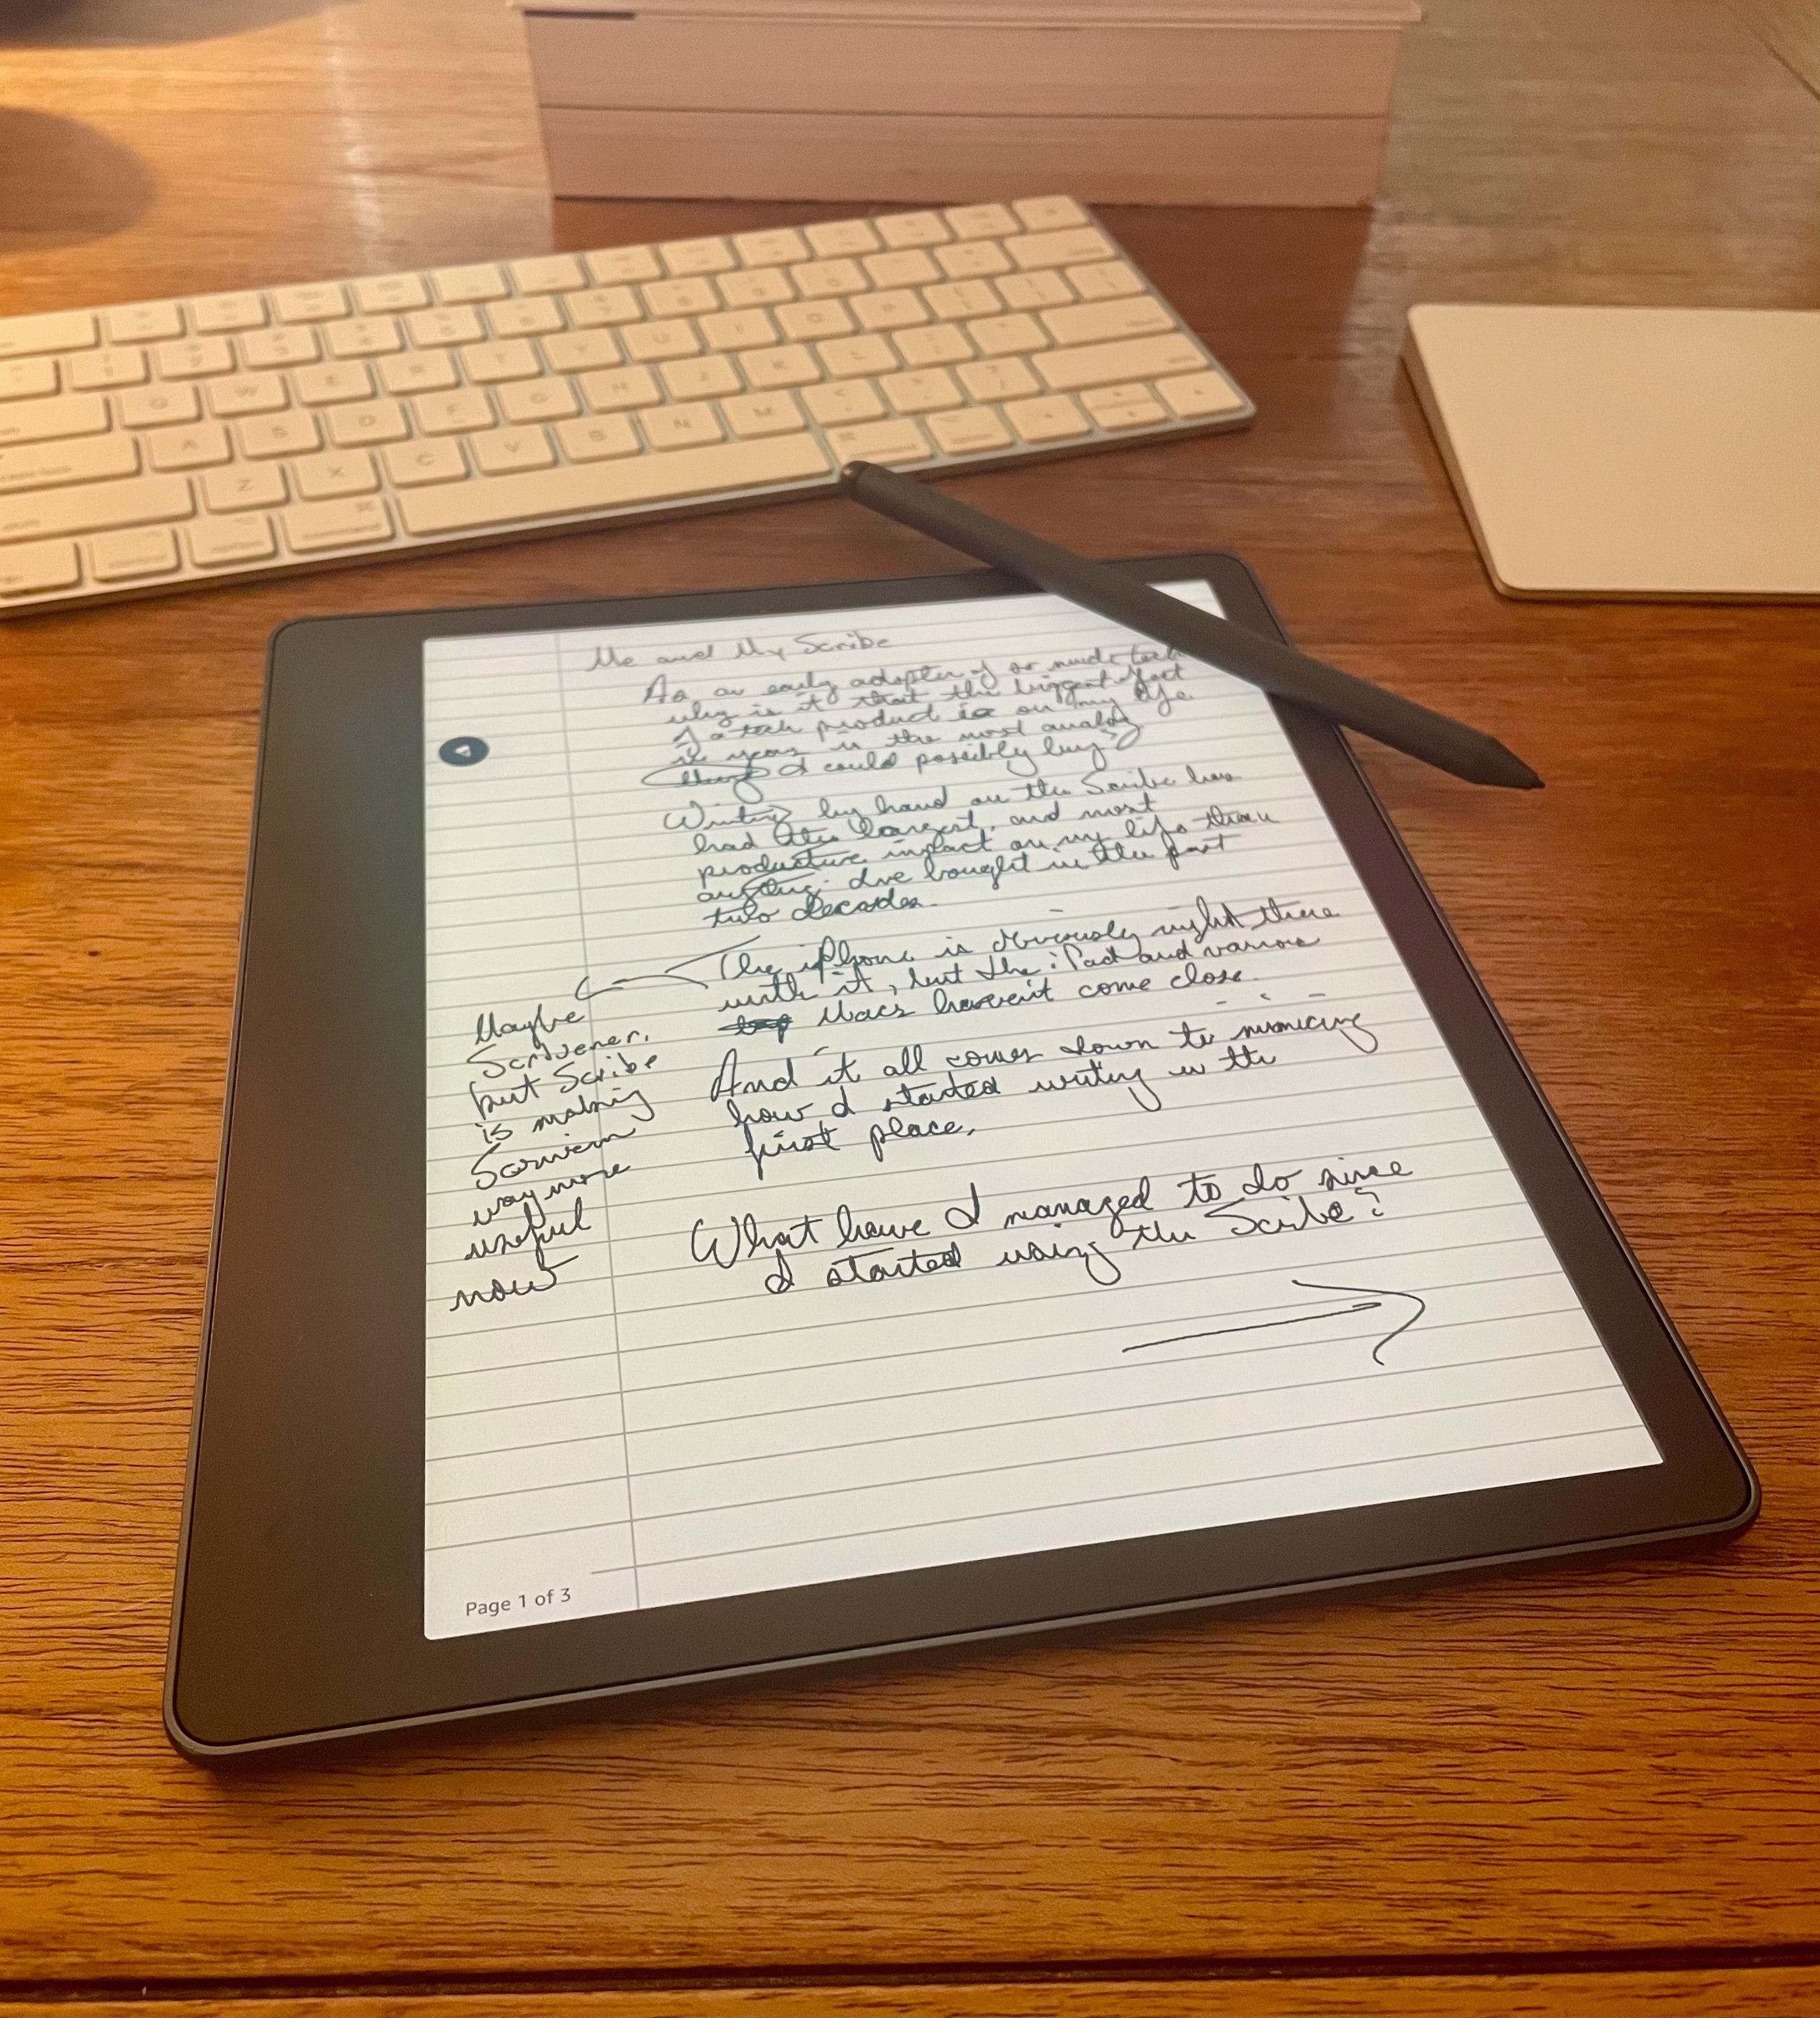 Me and My Scribe
As an early adopter of so much tech
why is it that the biggest effect
of a tech product on my life
in years is the most analog
thing I could possibly buy?
Writing by hand on the Scribe has
had the largest, and most
productive impact on my life than
anything I've bought in the past
two decades.
The iPhone is obviously right there
with it, but the iPad and various
Macs haven't come close.
And it all comes down to mimicing
how I started writing in the
first place.
What have I managed to do since
I started using the Scribe?
Maybe
Scrivener,
but Scribe
is making
way more
useful
now
Page 1 of 3
command
command
Q W E R T Y U I O P
A S D F G H J K L
Z X C V B N M